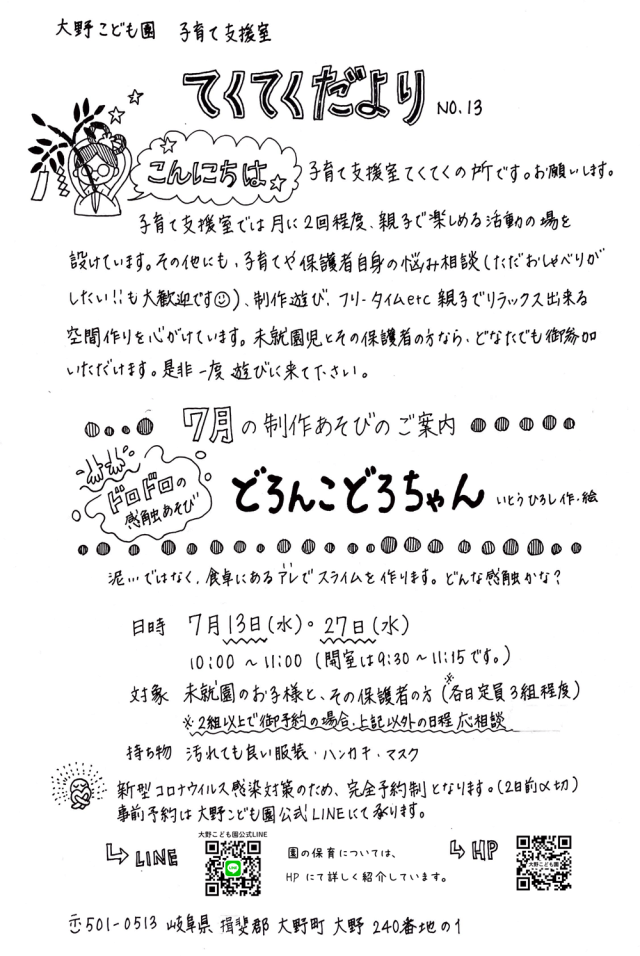 大野こども園 子育て支援室
てくてくだより NO.13
こんにちは 子育て支援室てくてくの所です。お願いします。
子育て支援室では月に2回程度、親子で楽しめる活動の場を
設けています。その他にも、子育てや保護者自身の悩み相談(ただおしゃべりが
したい!!も大歓迎です☺)、制作遊び、フリータイムetc 親子でリラックス出来る
空間作りを心がけています。未就園児とその保護者の方なら、どなたでも御参加
いただけます。是非一度遊びに来て下さい。
7月の制作あそびのご案内
ドロドロの
感触あそび
どろんこどろちゃん いとうひろし作・絵
泥…ではなく、食卓にあるアレでスライムを作ります。どんな感触かな?
日時 7月13日(水)。27日(水)
10:00 〜 11:00 (開室は9:30 〜 11:15です。)
対象 未就園のお子様と、その保護者の方(※各日定員3組程度)
※2組以上で御予約の場合、上記以外の日程 応相談
持ち物 汚れても良い服装・ハンカチ・マスク
新型コロナウイルス感染対策のため、完全予約制となります。(2日前〆切)
事前予約は大野こども園公式LINEにて承ります。
大野こども園公式LINE
LINE
園の保育については、
HPにて詳しく紹介しています。
HP
大野こども園
〒501-0513 岐阜県 揖斐郡 大野町 大野 240番地の1